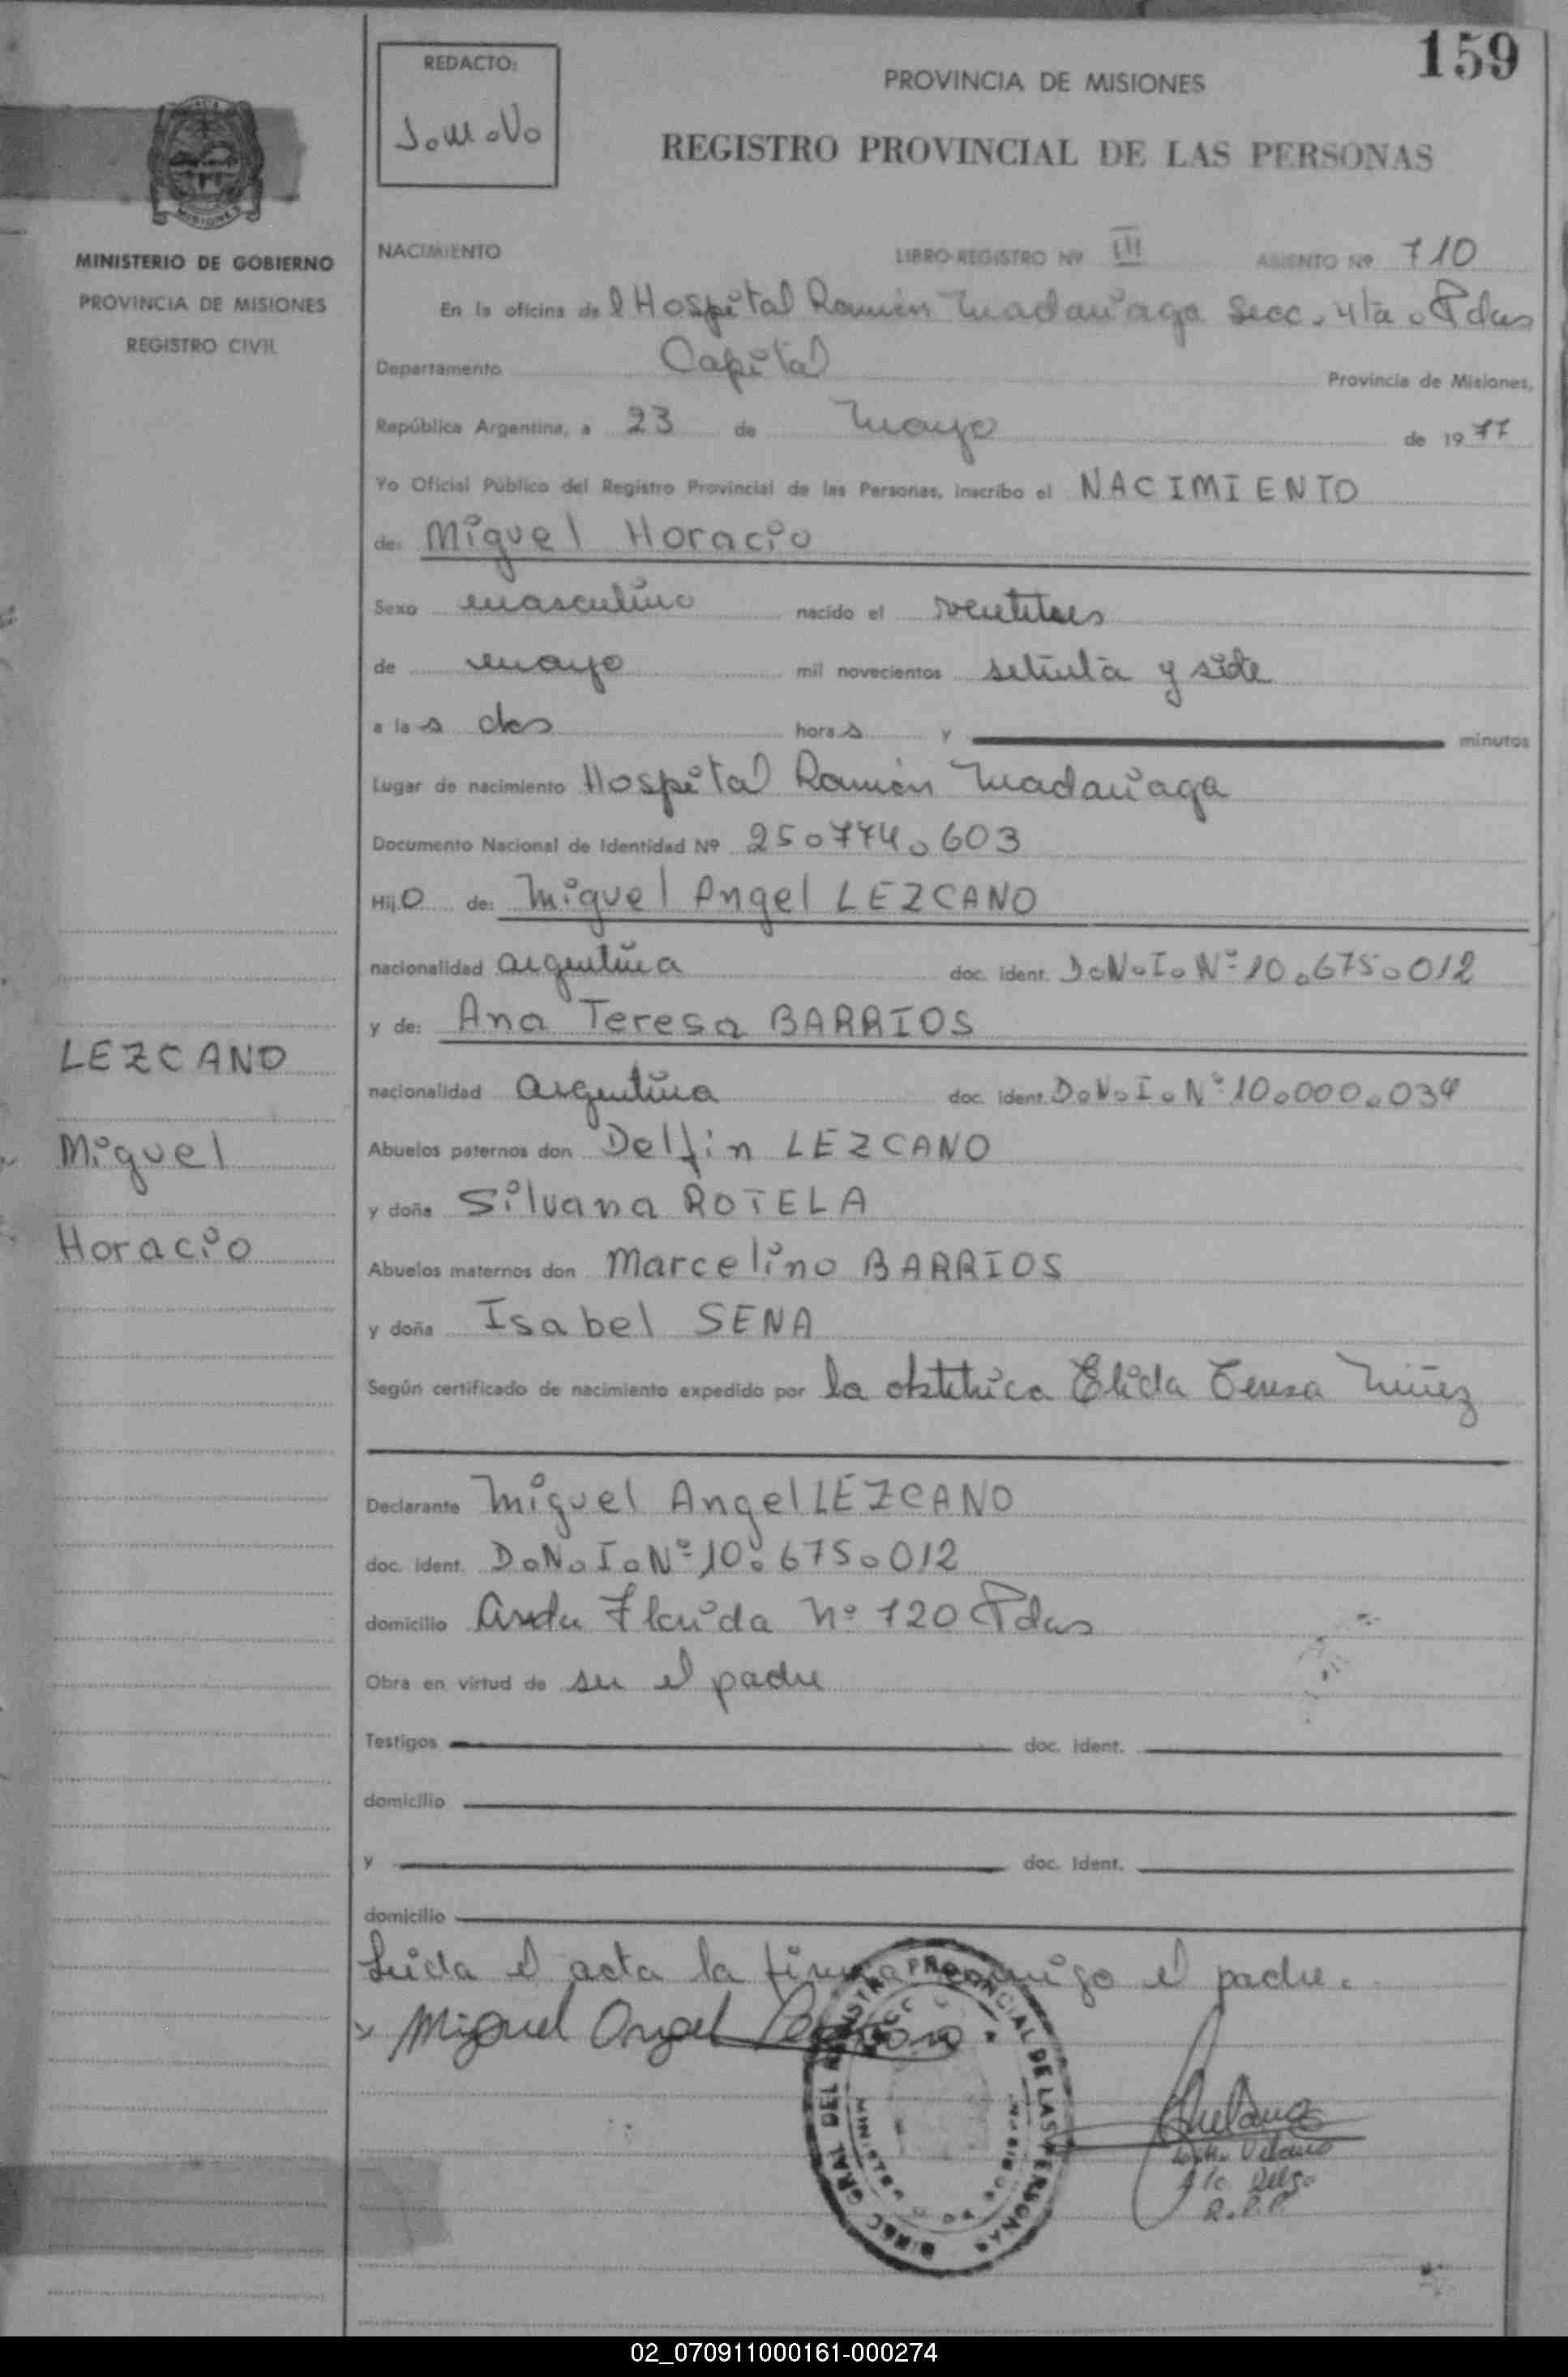 159
REDACTO:
J.M.V.
PROVINCIA DE MISIONES
REGISTRO PROVINCIAL DE LAS PERSONAS
MISIONES
MINISTERIO DE GOBIERNO
PROVINCIA DE MISIONES
REGISTRO CIVIL
NACIMIENTO LIBRO-REGISTRO Nº III ASIENTO Nº 710
En la oficina del Hospital Ramón Madariaga Secc. 4ta. Pdas
Departamento Capital Provincia de Misiones,
República Argentina, a 23 de Mayo de 1977
Yo Oficial Público del Registro Provincial de las Personas, inscribo el NACIMIENTO
de: Miguel Horacio
Sexo masculino nacido el veintitres
de mayo mil novecientos setenta y siete
a las dos horas y minutos
Lugar de nacimiento Hospital Ramón Madariaga
Documento Nacional de Identidad Nº 25.774.603
Hijo de: Miguel Angel LEZCANO
nacionalidad argentina doc. ident. D.N.I. Nº 10.675.012
y de: Ana Teresa BARRIOS
nacionalidad argentina doc. ident. D.N.I. Nº 10.000.034
Abuelos paternos don Delfin LEZCANO
y doña Silvana ROTELA
Abuelos maternos don Marcelino BARRIOS
y doña Isabel SENA
Según certificado de nacimiento expedido por la obstétrica Elida Teresa Núñez
LEZCANO
Miguel
Horacio
Declarante Miguel Angel LEZCANO
doc. ident. D.N.I. Nº 10.675.012
domicilio Florida Nº 120 Pdas
Obra en virtud de ser el padre
Testigos doc. ident.
domicilio
y doc. ident.
domicilio
Leida el acta la firma conmigo el padre.
Miguel Angel Lezcano
DIREC. GRAL. DEL REGISTRO PROVINCIAL DE LAS PERSONAS
R.P.P.
02_070911000161-000274